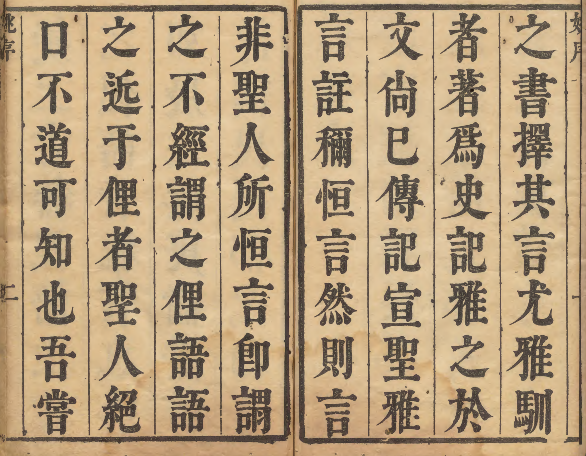 之書擇其言尤雅馴
者著爲史記雅之於
文尙巳傳記宣聖雅
言註穪恒言然則言
非聖人所恒言卽謂
之不經謂之俚語語
之近于俚者聖人絕
口不道可知也吾嘗